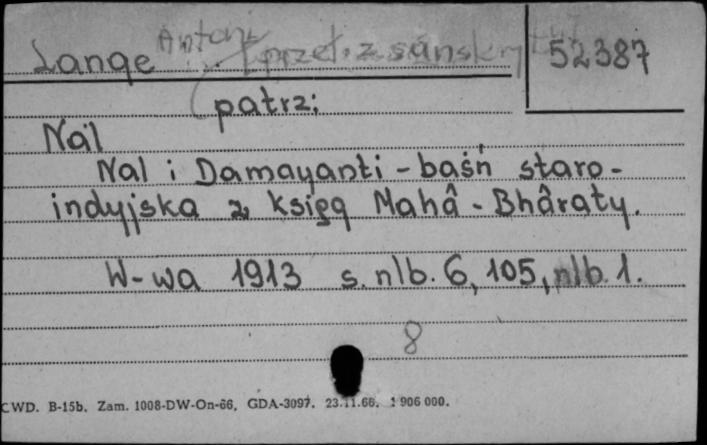 Lange Antoni przeł. z sanskrytu 52387
patrz:
Nal
Nal i Damayanti - baśń staro-
indyjska z ksiąg Mahâ - Bhâraty.
W-wa 1913 s. nlb. 6, 105, nlb. 1.
8
CWD. B-15b. Zam. 1008-DW-On-66, GDA-3097. 23.11.66. 1 906 000.